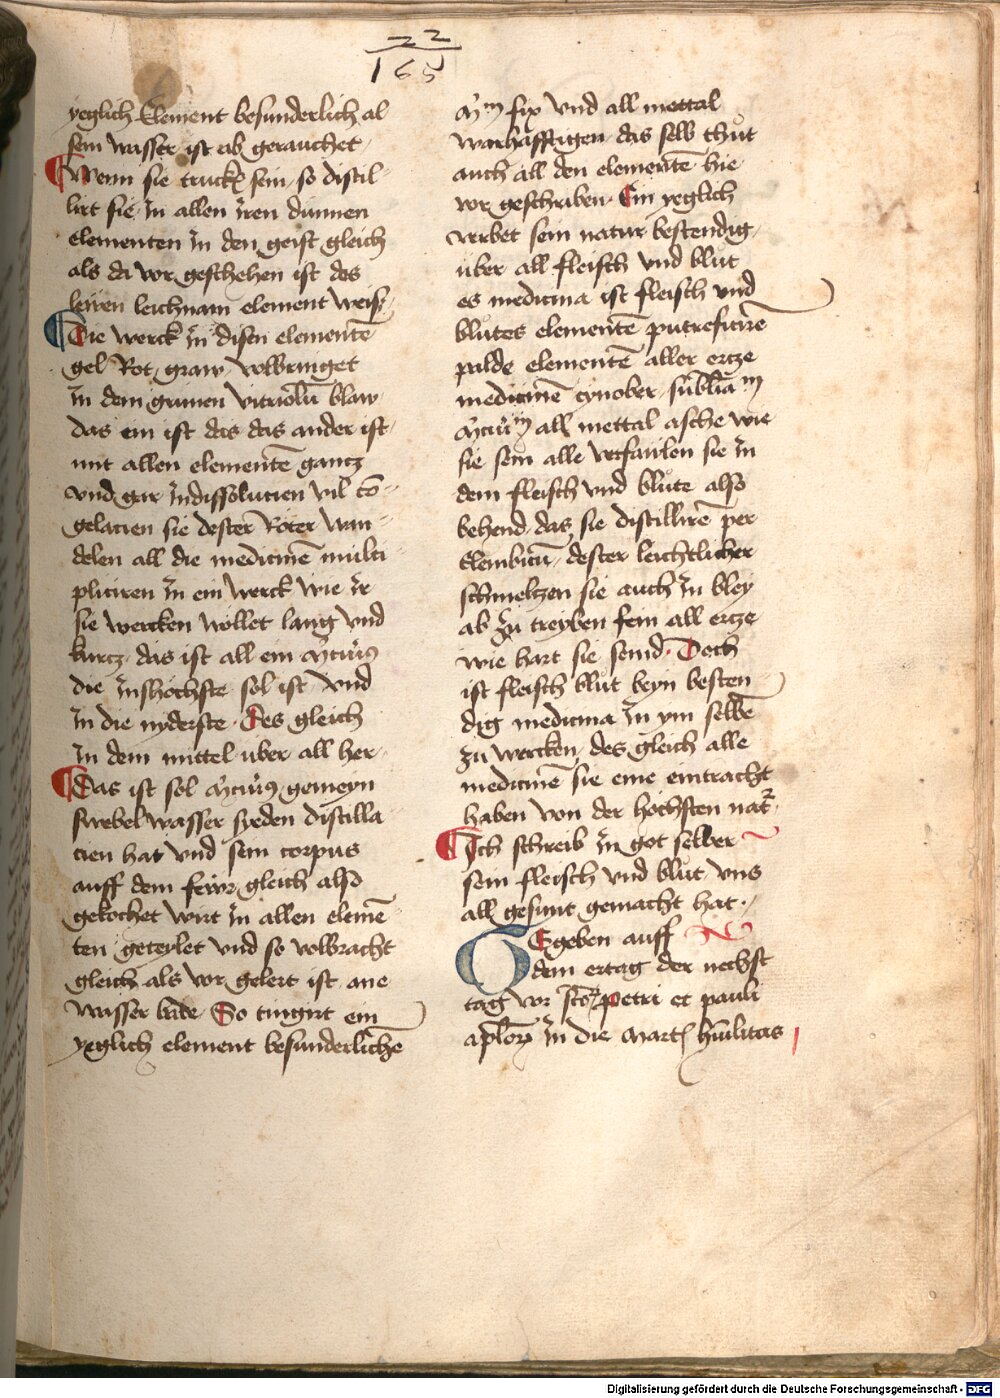 22
165
yeglich Element besunderlich al
sein wasser ist ab gerauchet
Wenn sie truckē sein so distil-
lirt sie in allen iren dunnen
elementen in den geist gleich
als da vor geschehen ist des
lewen leichnam element weiß
Die werck in disen elementē
gel Rot graw volbringet
in dem grunen vitriolū blaw
das ein ist das das ander ist
mit allen elementē gantz
vnd gar in dissolucien vil cō-
gelacien sie dester Röter wan-
delen all die medicinē multi-
pliciren in ein werck wie ir
sie wercken wöllet lang vnd
kurcz das ist all ein mercurius
die ins höchste sol ist vnd
in die nyderste Des gleich
in dem mittel uber all her
Das ist sol mercurius gemeyn
swebel wasser syeden distilla
cien hat vnd sein corpus
auff dem fewr gleich also
gekochet wirt in allen elemē-
ten geteylet vnd so volbracht
gleich als vor gelert ist ane
wasser bade So tingirt ein
yeglich element besunderlichē
fix vnd all mettal
warhafftigen das selb thůt
auch all den elementē hie
vor geschriben Ein yeglich
verbet sein natur bestendig
uber all fleisch vnd blůt
es medicina ist fleisch vnd
blůtes elementē putreficirē
palde elementē aller ercze
medicinē cynober
all mettal asche wie
sie sein alle verfaulen sie in
dem fleisch vnd blůte also
behend das sie distillirē per
Elembicū dester leichtlicher
schmeltzen sie auch in bley
ab zu treyben fein all ercze
wie hart sie seind Doch
ist fleisch blůt beyn besten
dig medicina in ym selbē
zu wercken des gleich alle
medicinē sie eine eintracht
haben von der höchsten nat
Ich schreib in got selber
sein fleisch vnd blůt vns
all gesunt gemacht hat
GEgeben auff
dem ertag der nechst
tag vor petri et pauli
in die
Digitalisierung gefördert durch die Deutsche Forschungsgemeinschaft - DFG